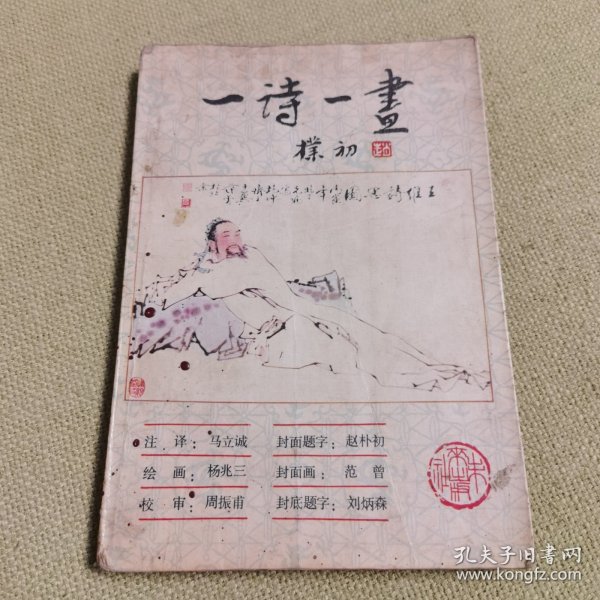 一诗一畫
樸初
注 译：马立诚 封面题字：赵朴初
绘 画：杨兆三 封面画：范 曾
校 审：周振甫 封底题字：刘炳森
孔夫子旧书网
www.kongfz.com